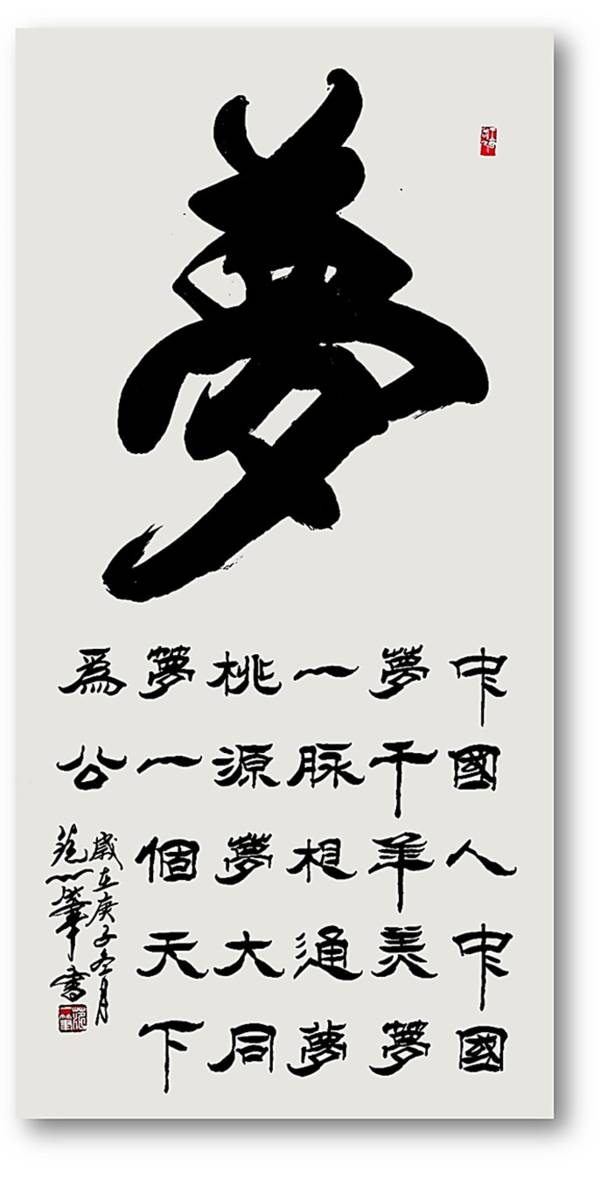 夢
中國人中國
夢千年美夢
一脉相通夢
桃源夢大同
夢一個天下
爲公
歲在庚子冬月
范一筆書